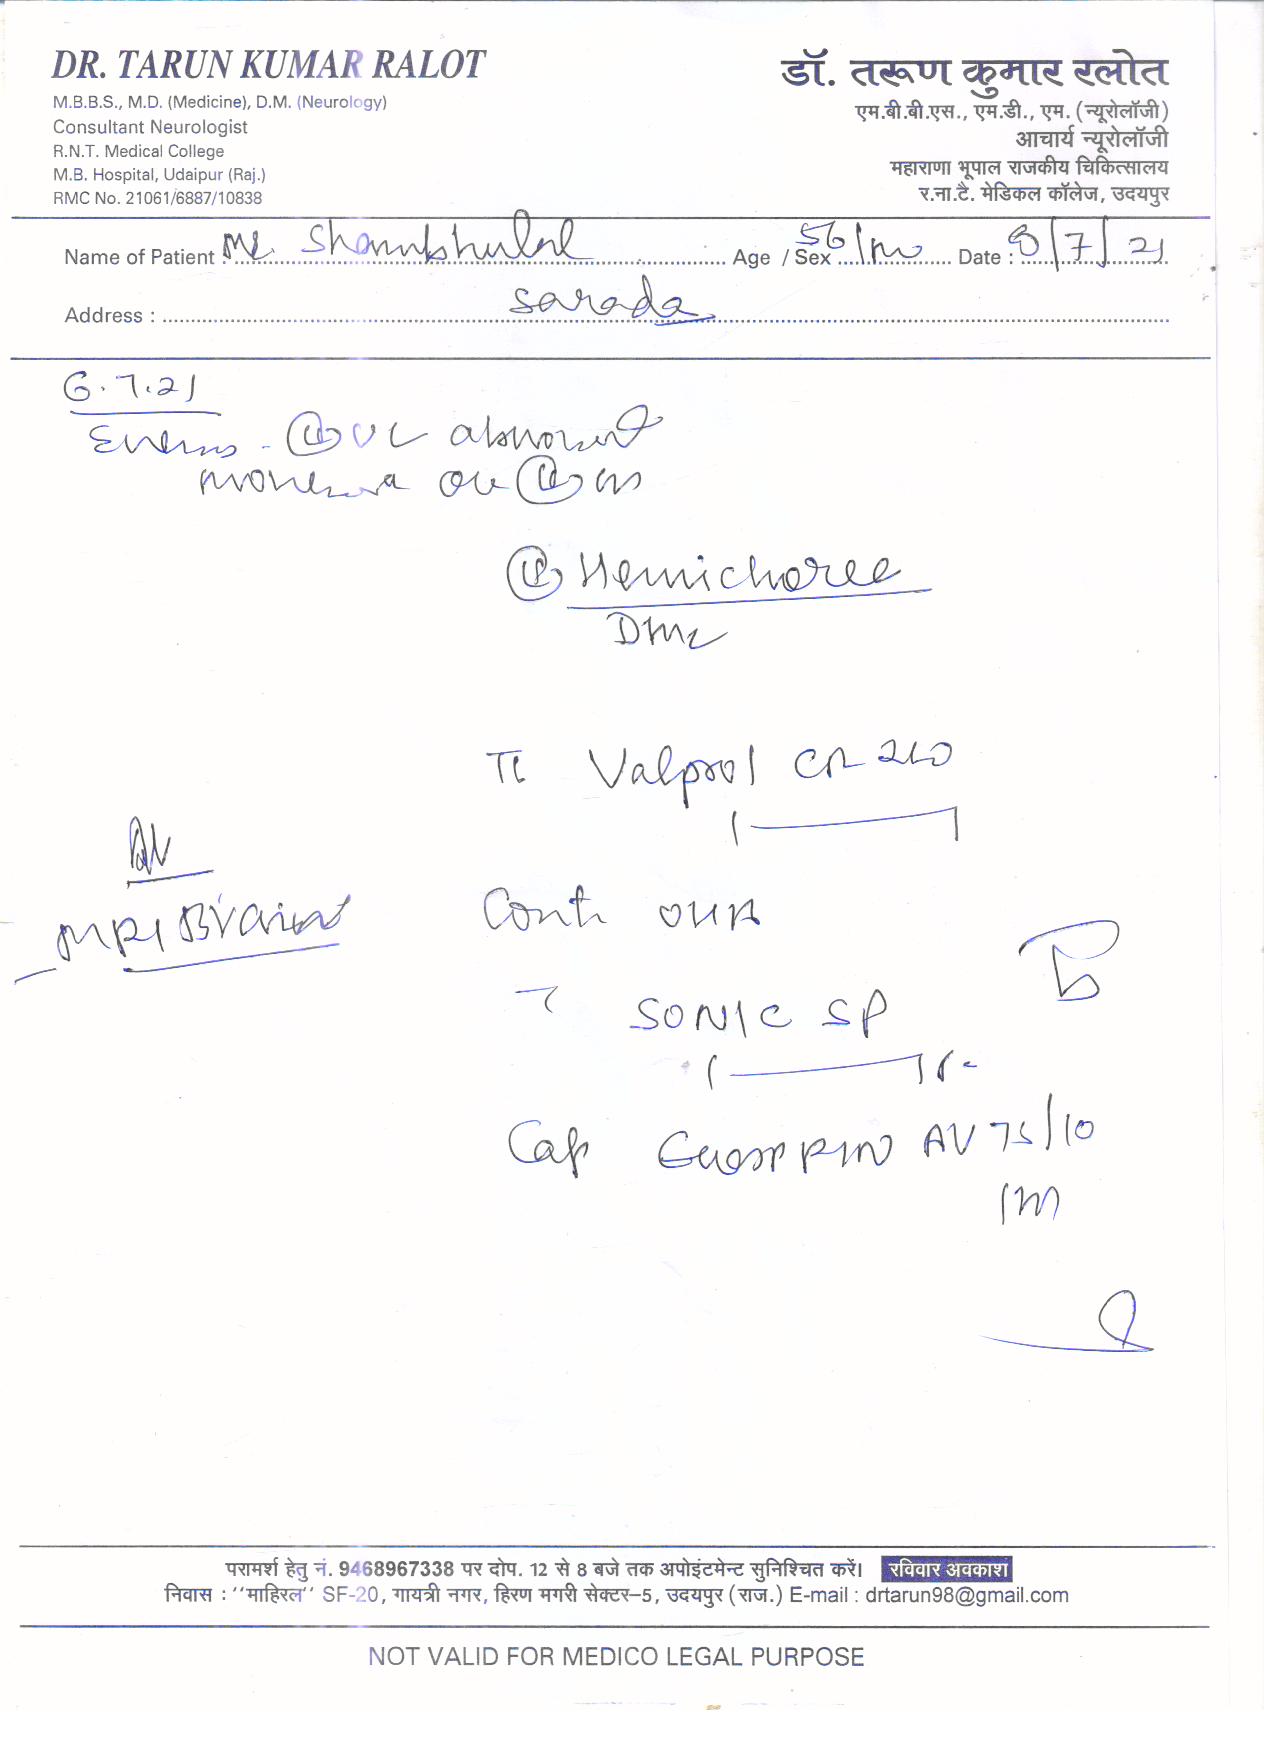 DR. TARUN KUMAR RALOT
M.B.B.S., M.D. (Medicine), D.M. (Neurology)
Consultant Neurologist
R.N.T. Medical College
M.B. Hospital, Udaipur (Raj.)
RMC No. 21061/6887/10838
डॉ. तरूण कुमार रलोत
एम.बी.बी.एस., एम.डी., एम. (न्यूरोलॉजी)
आचार्य न्यूरोलॉजी
महाराणा भूपाल राजकीय चिकित्सालय
र.ना.टै. मेडिकल कॉलेज, उदयपुर
Name of Patient : Mr. Shambhulal Age / Sex 56/m Date : 8/7/21
Address : Sarada
6.7.21
abnormal
on
Hemichorea
Valprol CR 200
Adv
MRI Brain
Cont
SONIC SP
Cap AV 75/10
परामर्श हेतु नं. 9468967338 पर दोप. 12 से 8 बजे तक अपोइंटमेन्ट सुनिश्चित करें। रविवार अवकाश
निवास : "माहिरल" SF-20, गायत्री नगर, हिरण मगरी सेक्टर-5, उदयपुर (राज.) E-mail : drtarun98@gmail.com
NOT VALID FOR MEDICO LEGAL PURPOSE